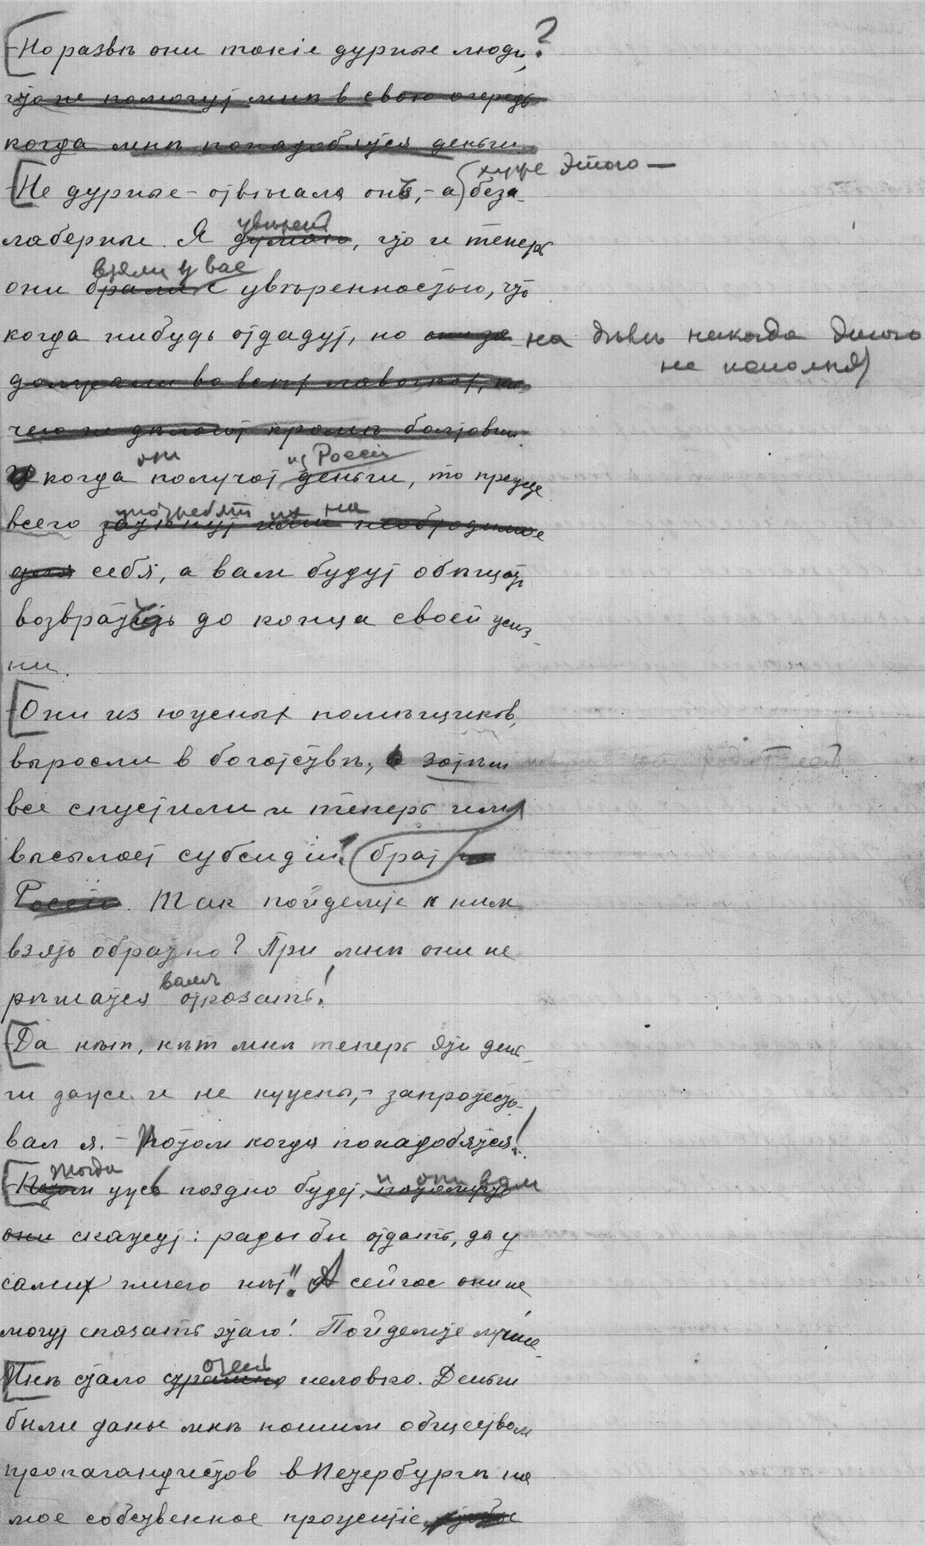 -Но развѣ они такіе дурные люди?
что не помогут мнѣ в свою очередь
когда мнѣ понадобятся деньги
хуже этого —
-Не дурные - отвѣчала она, - а беза-
лаберные. Я думаю, что и теперь
увѣрена
взяли у вас
они брали с увѣренностью, что
когда нибудь отдадут, но на дѣлѣ никогда этого
не исполнят
во всѣх лавочках, ни-
чего не дѣлают кромѣ болтовни
они из Россіи
И когда получат деньги, то прежде
употребят их на
всего необходимое
для себя, а вам будут обѣщать
возвратить до конца своей жиз-
ни.
-Они из южных помѣщиков,
выросли в богатствѣ, затѣм
все спустили и теперь им
высылает субсидіи брат из
Россіи. Так пойдемте к ним
взять обратно? При мнѣ они не
вам
рѣшатся отказать!
-Да нѣт, нѣт мнѣ теперь эти день-
ги даже и не нужны, - запротесто-
вал я. - Потом когда понадобятся!
Тогда
-Потом уже поздно будет, и они вам
они скажут: рады бы отдать, да у
самих ничего нѣт"! А сейчас они не
могут сказать этого! Пойдемте лучше!
очень
Мнѣ стало страшно неловко. Деньги
были даны мнѣ нашим обществом
пропагандистов в Петербургѣ на
мое собственное прожитіе,